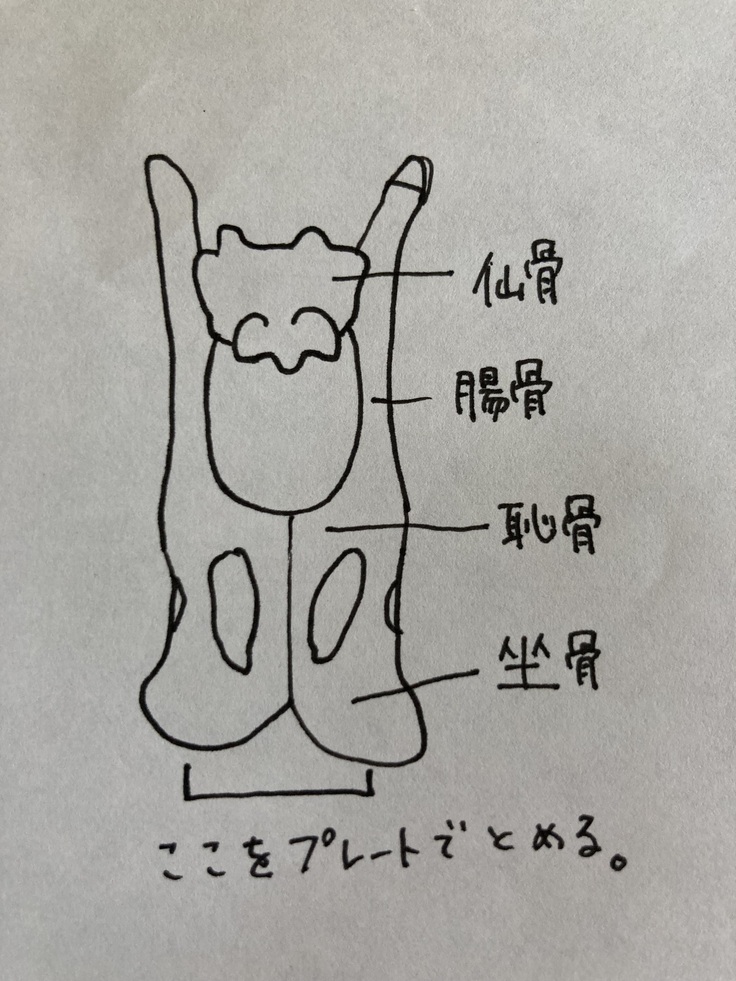 仙骨
腸骨
恥骨
坐骨
ここをプレートでとめる。